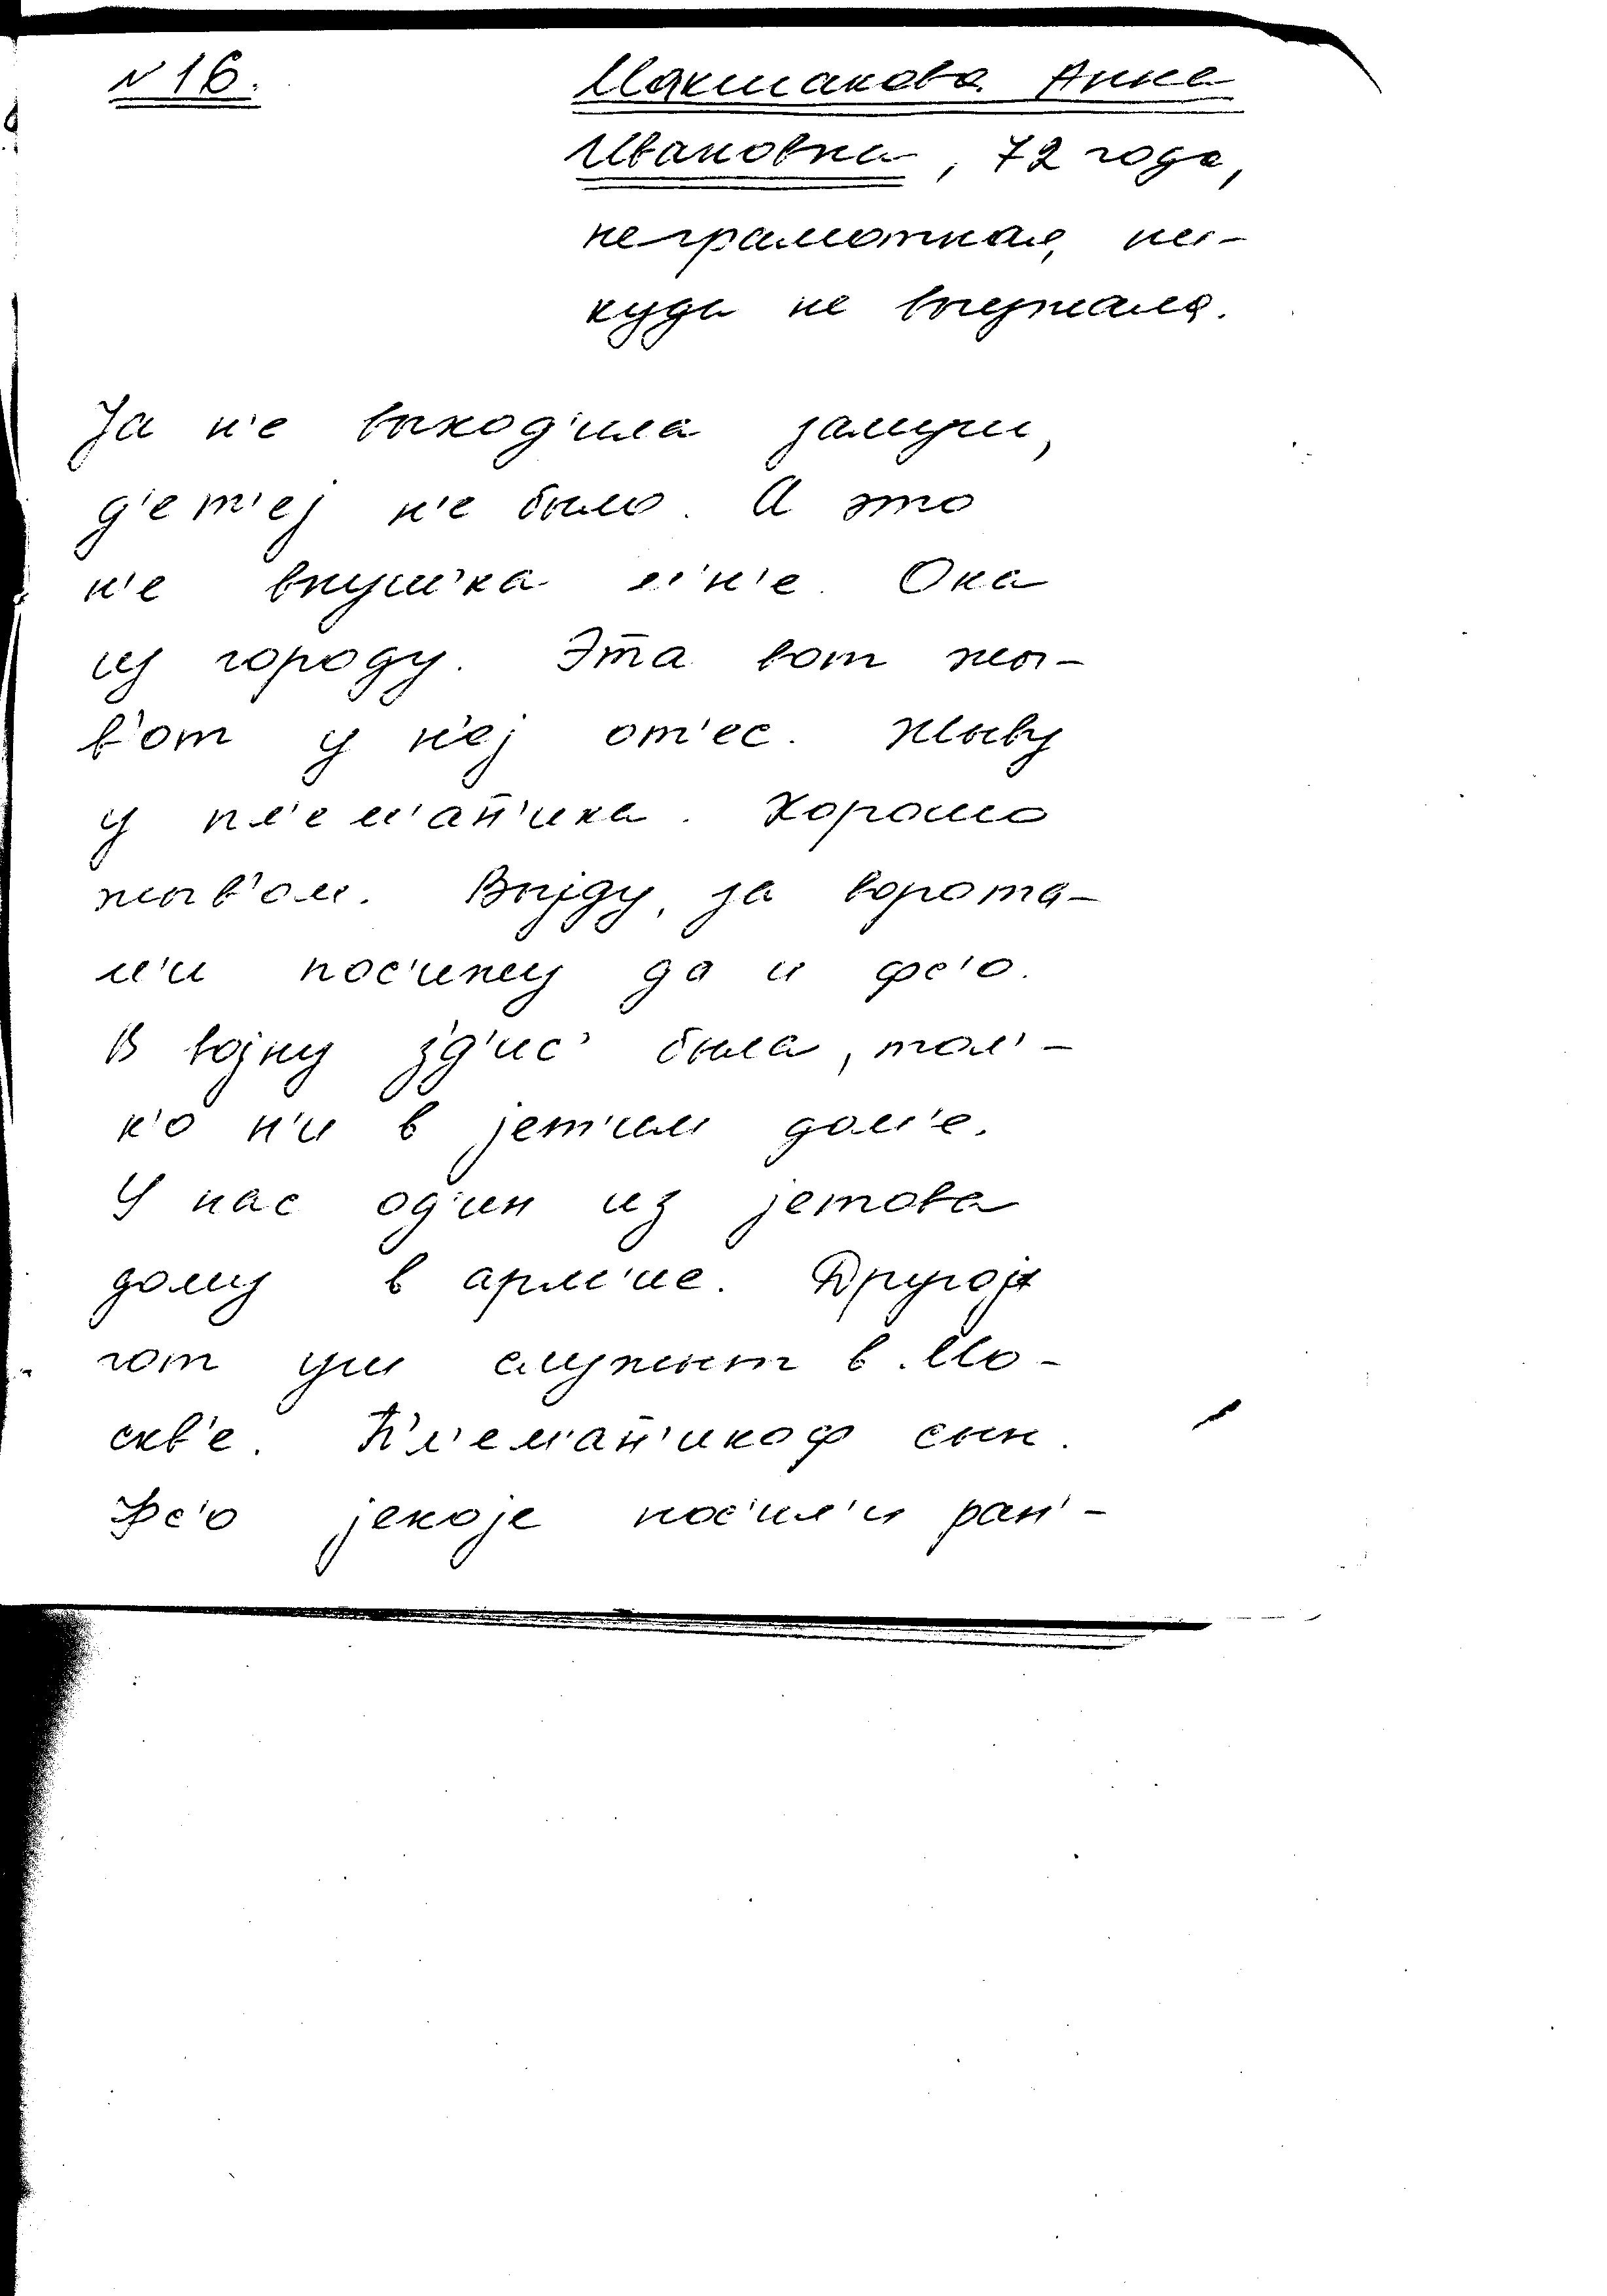 N 16. Макшакова Анна
Ивановна, 72 года,
неграмотная, ни-
куда не выезжала.
Jа н'е выход'ила замуш,
д'ет'еj н'е было. А это
н'е внуш'ка м'н'е. Она
из городу. Эт̄а вот жы-
в'от у н'еj от'ес. Жыву
у пл'ем'ан̄'ика. Хорошо
жыв'ом. Выjду, за ворота-
м'и пос'ижу да и фс'о.
В воjну з'д'ис' была, тол'-
к'о н'и в jет'им дом'е.
У нас од'ин из jетова
дому в арм'ие. Другоj
гот уш служыт в Мо-
скв'е. Пл'ем'ан̄'икоф сын.
Фс'о jекоjе нос'ил'и ран'-